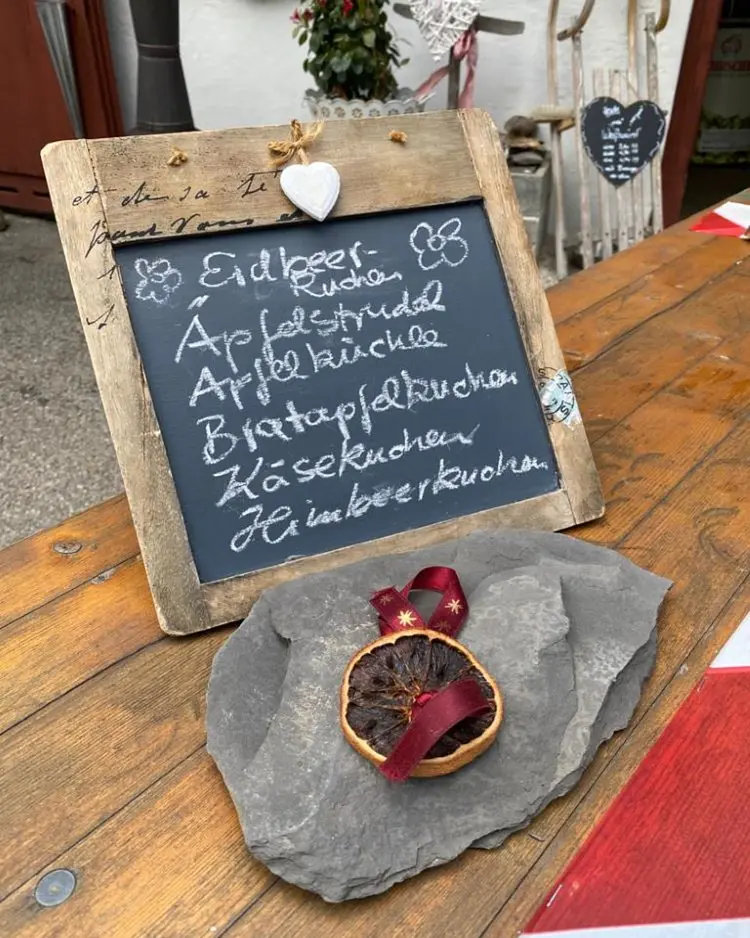 et de sa
Erdbeer-
kuchen
Äpfelstrudel
Apfelküchle
Bratapfelkuchen
Käsekuchen
Himbeerkuchen